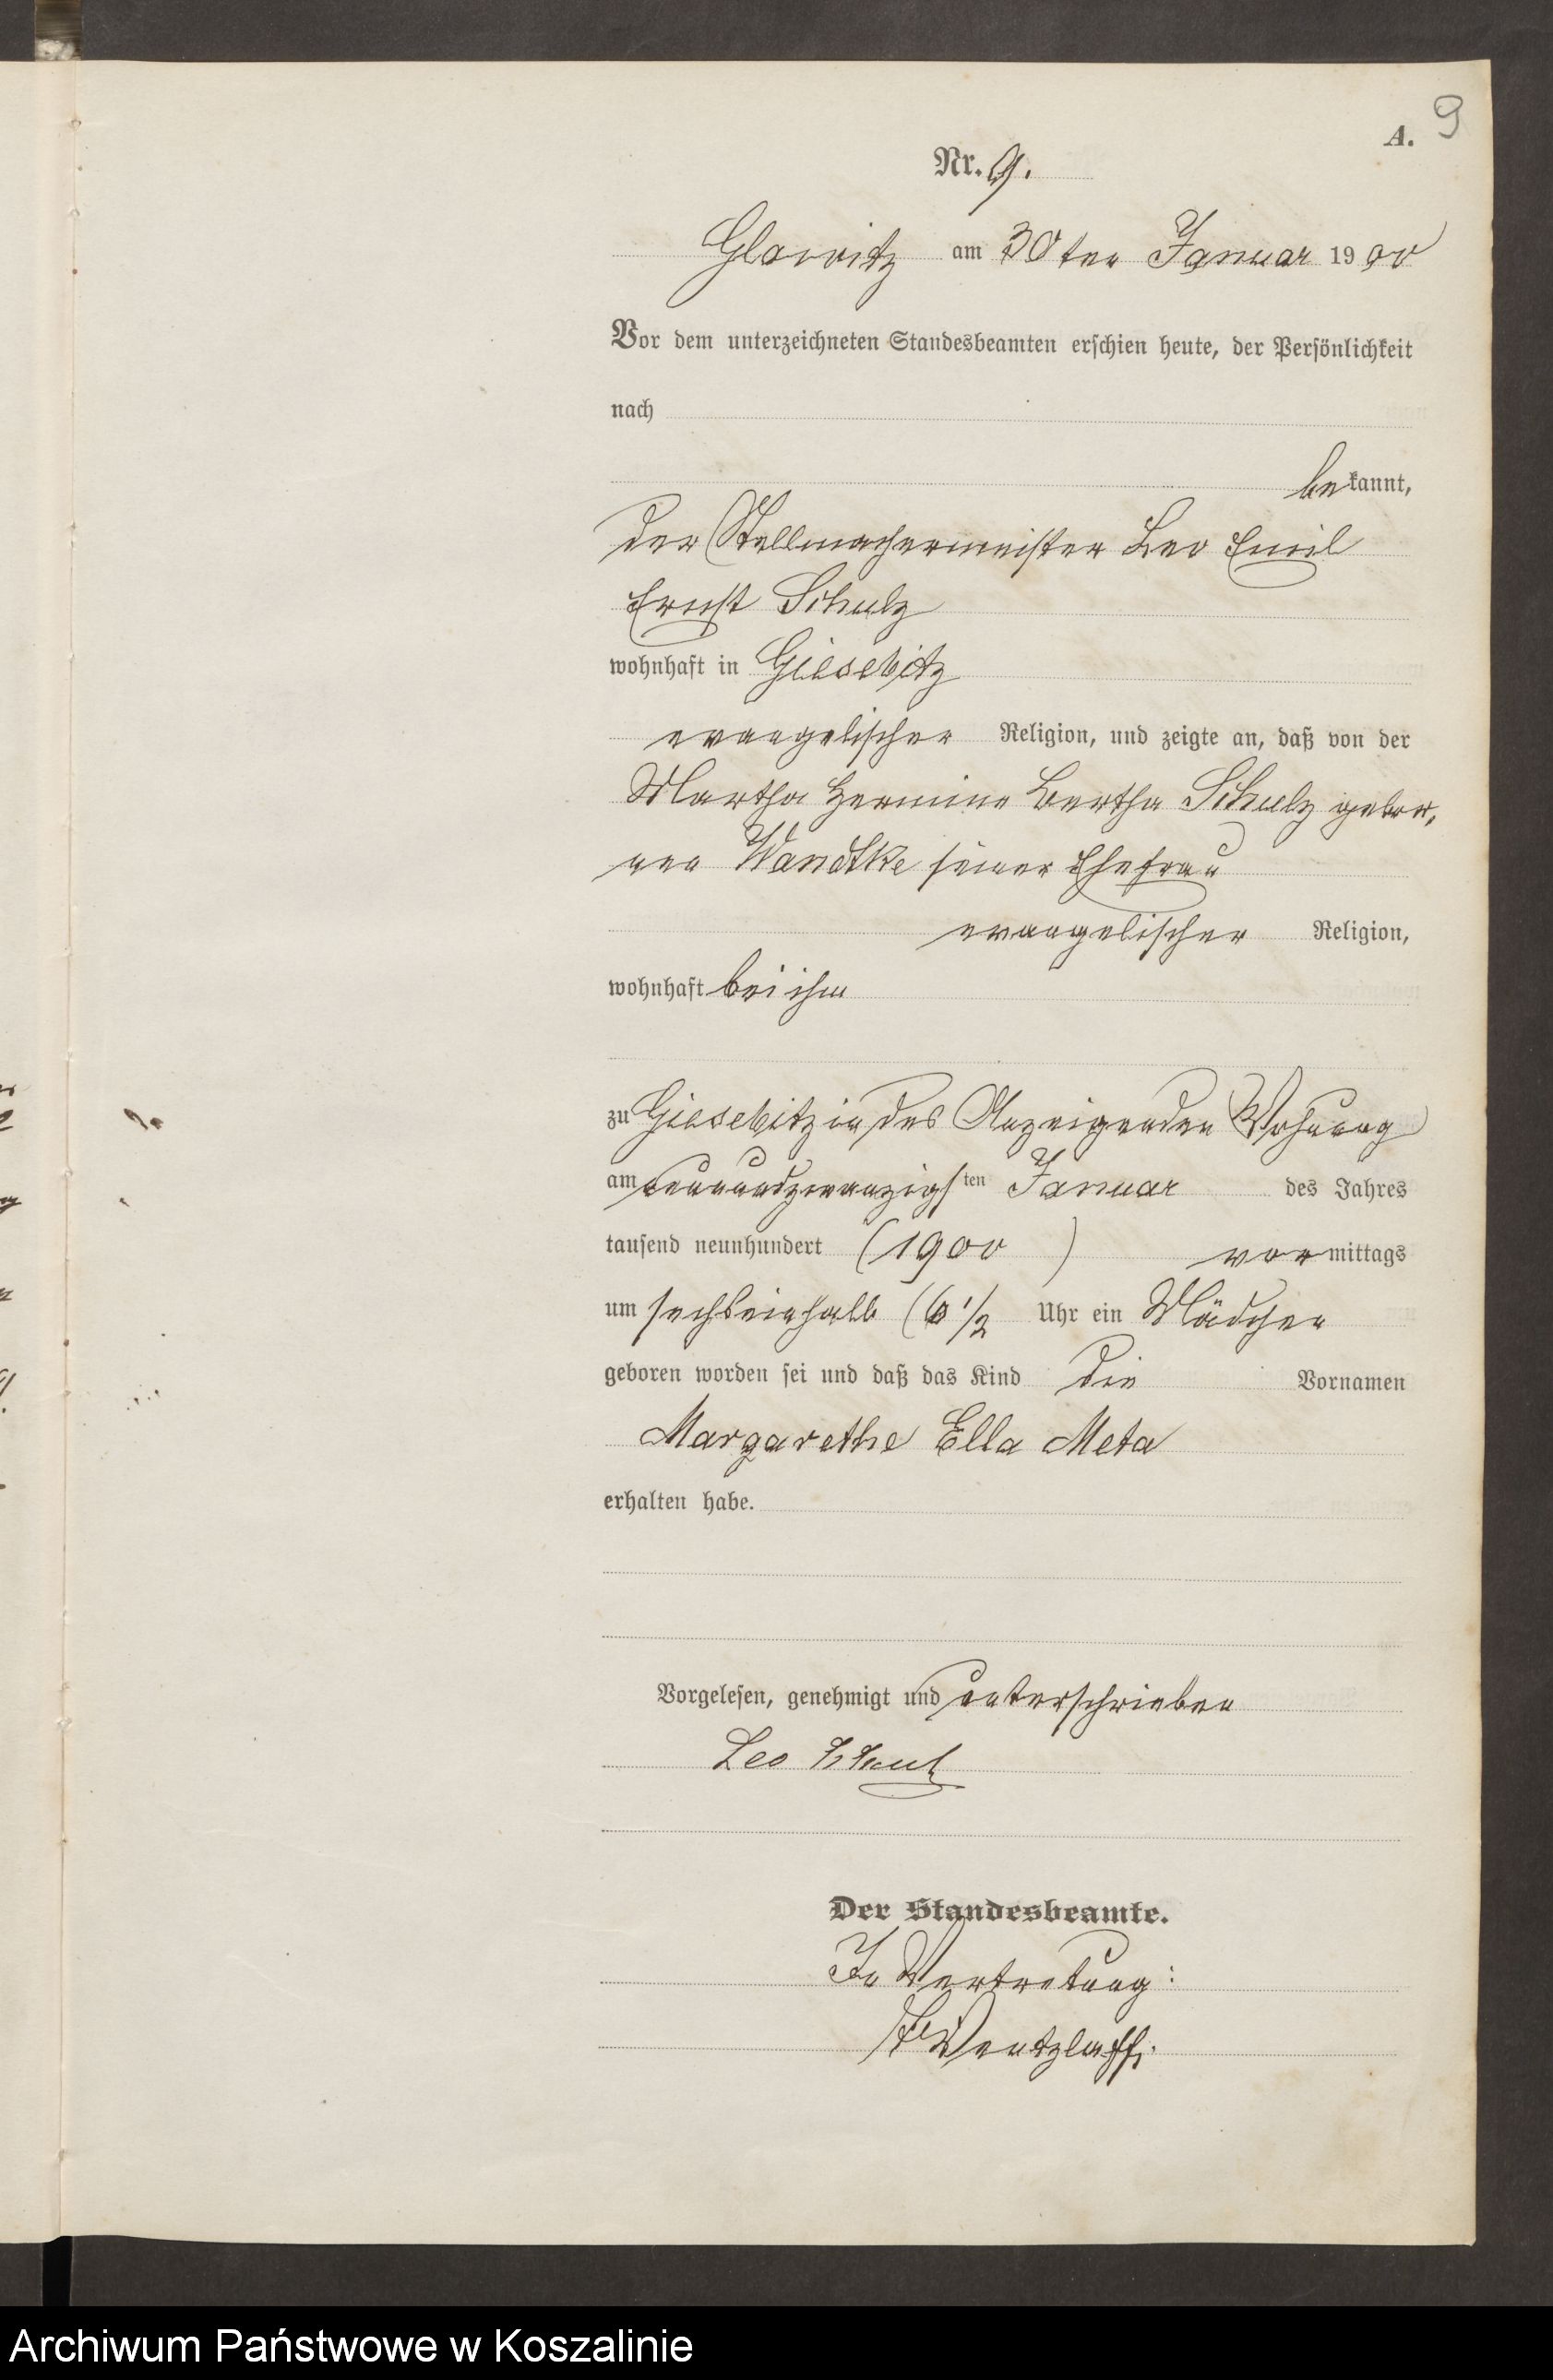 9
A.
Nr. 9.
Glowitz am 30ten Januar 1900
Vor dem unterzeichneten Standesbeamten erschien heute, der Persönlichkeit
nach
bekannt,
der Stellmachermeister Leo Emil
Ernst Schulz
wohnhaft in Giesebitz
evangelischer Religion, und zeigte an, daß von der
Martha Hermine Bertha Schulz gebor,
nen Wandtke seiner Ehefrau
evangelischer Religion,
wohnhaft bei ihm
zu Giesebitz in des Anzeigenden Wohnung
am neunundzwanzigsten Januar des Jahres
tausend neunhundert (1900) vormittags
um sechseinhalb (6 1/2 Uhr ein Mädchen
geboren worden sei und daß das Kind die Vornamen
Margarethe Ella Meta
erhalten habe.
Vorgelesen, genehmigt und unterschrieben
Leo Schulz
Der Standesbeamte.
In Vertretung:
Wentzlaff.
Archiwum Państwowe w Koszalinie